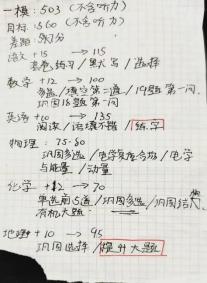 一模:503(不含听力)
目标:560(不含听力)
差距:57分
语文 +15 → 115
练习/默写/选择
数学 +12 → 100
多选/填空第二道/19题第一问
巩固18题第一问
英语 +10 → 135
阅读/语境/练字
物理:75-80
巩固多选/电学实验/电学
与能量/动量
化学 +12 → 70
单选前5道/巩固多选/巩固结构
有机大题
地理 +10 → 95
巩固选择/提升大题